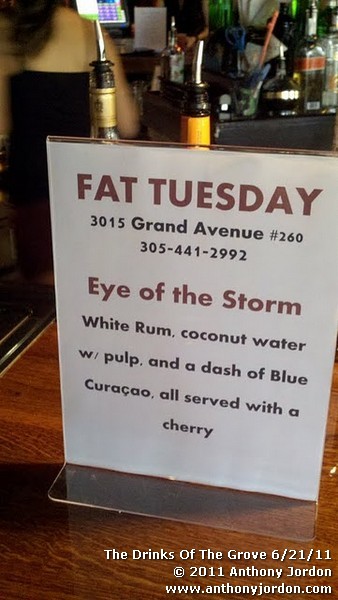 FAT TUESDAY
3015 Grand Avenue #260
305-441-2992
Eye of the Storm
White Rum, coconut water
w/ pulp, and a dash of Blue
Curaçao, all served with a
cherry
The Drinks Of The Grove 6/21/11
© 2011 Anthony Jordon
www.anthonyjordon.com